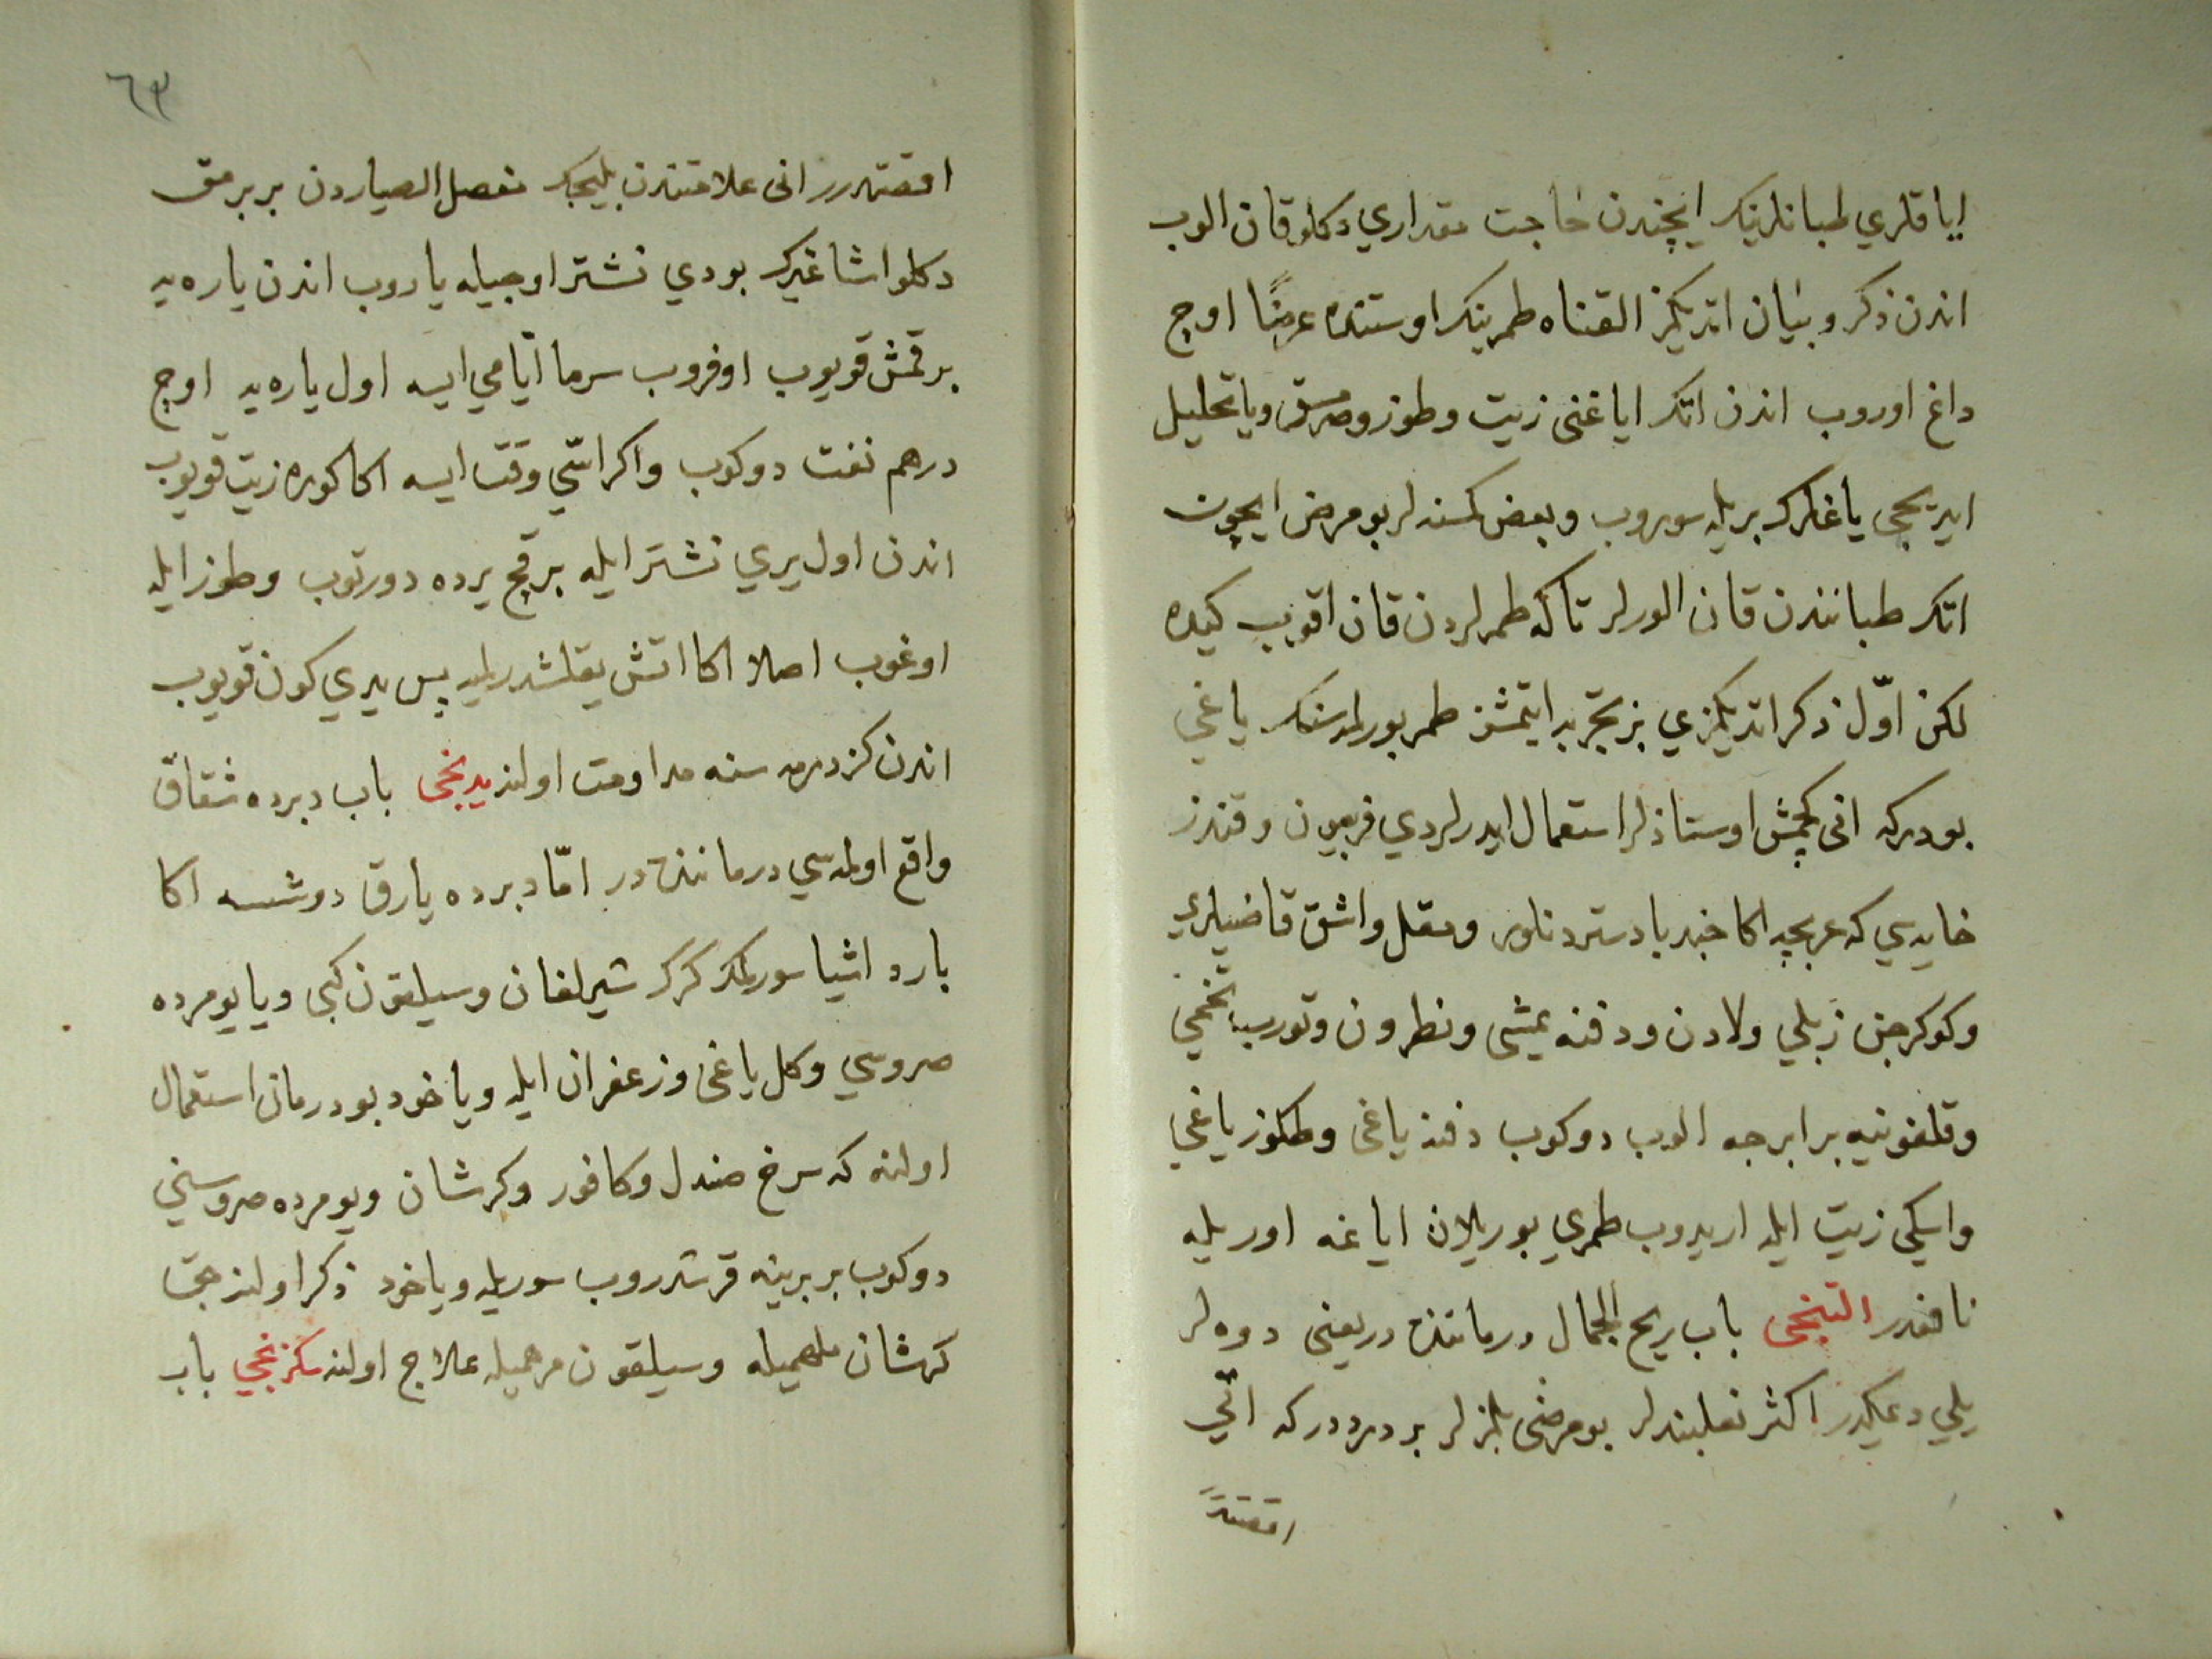 اياقلري طبانلرينك ايچندن حاجت مقداري دكلو قان الوب
اندن ذكر و بيان اتديكمز القناه طمرينك اوستنده عرضًا اوچ
داغ اوروب اندن اتك اياغنى زيت وطوز وصرمسق ويا تحليل
ايديجى ياغلرك بريله سوروب وبعض كمسنه لر بو مرض ايچون
اتك طباننندن قان الورلر تاكه طمرلردن قان اقوب كيده
لكن اوّل ذكر اتديكمزي بز تجربه ايتمشز طمر بورلمه سنك ياغي
بودركه انى كچمش اوستاذلر استعمال ايدرلردي فربيون وقندز
خايه سي كه عربجه اكا جند بادستر دنلور ومقل واشق قاضيلري
وكوكرجن زبلي ولادن ودفنه يمشى ونطرون وتورب تخمي
وقلفونيه برابرجه الوب دوكوب دفنه ياغى وطكوز ياغي
واسكي زيت ايله اريدوب طمري بوريلان اياغه اوريله
نافعدر التنجى باب ريح الجمال درماننده در يعنى دوه لر
يلي ديمكدر اكثر نعلبندلر بو مرضى بلمزلر بر درددركه اتي
اقصتدر
٦٣
اقصتدرر انى علامتندن بليجك مفصل الصياردن بر برمق
دكلو اشاغيرك بودي نشتر اوجيله ياروب اندن ياره يه
بر قمش قويوب اوفروب سرما ايّامي ايسه اول ياره يه اوچ
درهم نفت دوكوب واكر اسّي وقت ايسه اكا كوره زيت قويوب
اندن اول يري نشتر ايله بر قچ يرده دورتوب وطوز ايله
اوغوب اصلا اكا اتش يقلشدرلميه پس يدي كون قويوب
اندن كزدرمه سنه مداومت اولنه يدنجى باب دبرده شقاق
واقع اولمه سي درماننده در امّا دبرده يارق دوشسه اكا
بارد اشيا سورلمك كرك شيرلغان وسيلقون كبى ويا يومرده
صروسي وكل ياغى وزعفران ايله ويا خود بو درمان استعمال
اولنه كه سرخ صندل وكافور وكرشان ويومرده صروسني
دوكوب بر برينه قرشدروب سوريله ويا خود ذكر اولنه جق
كرشان ملهميله وسيلقون مرهميله علاج اولنه سكزنجي باب